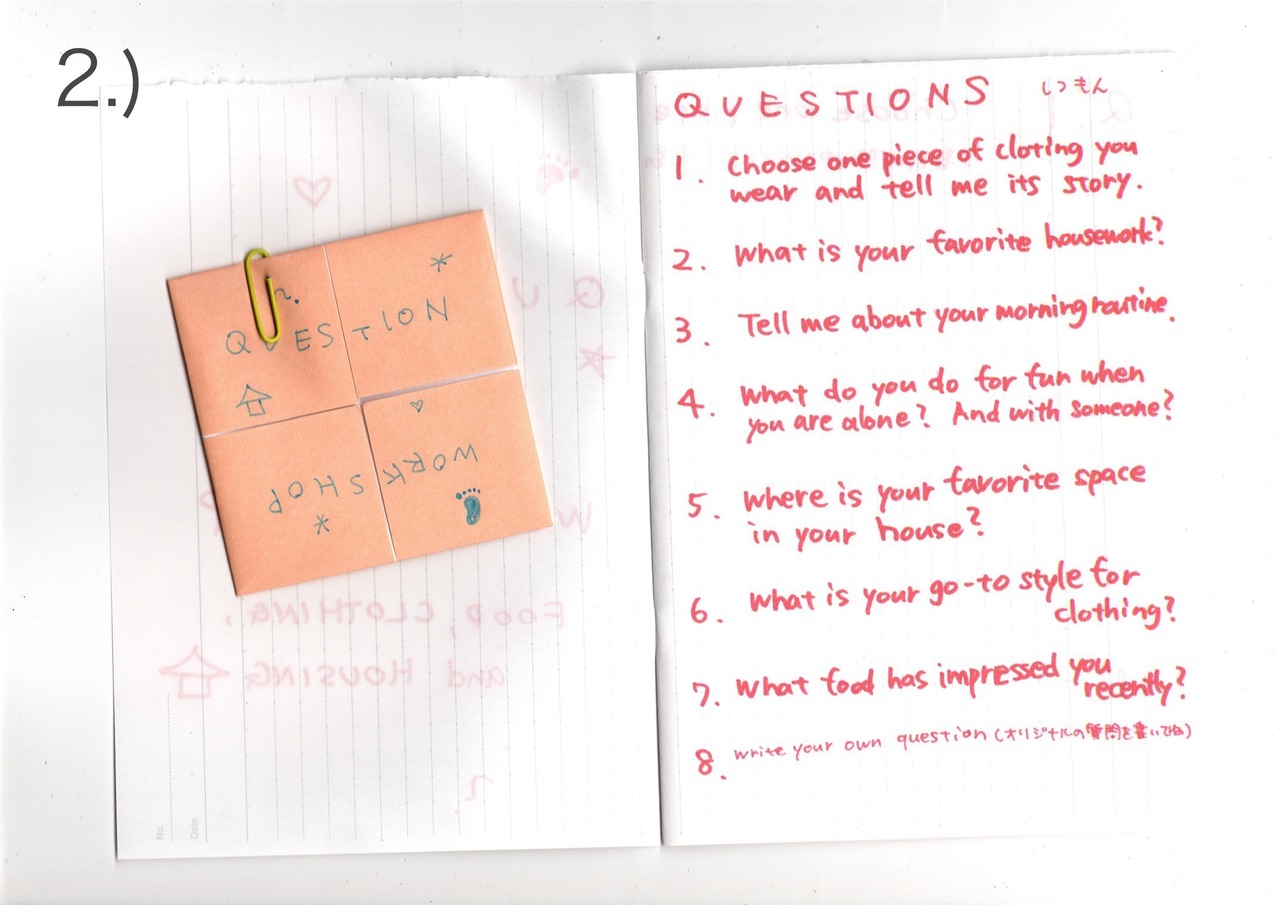 2.)
QUESTION
WORK SHOP
FOOD, CLOTHING,
and HOUSING
No.
Date
QUESTIONS しつもん
1. Choose one piece of cloting you
wear and tell me its story.
2. What is your favorite housework?
3. Tell me about your morning routine.
4. What do you do for fun when
you are alone? And with someone?
5. Where is your favorite space
in your house?
6. What is your go-to style for
clothing?
7. What food has impressed you
recently?
8. write your own question (オリジナルの質問を書いてね)